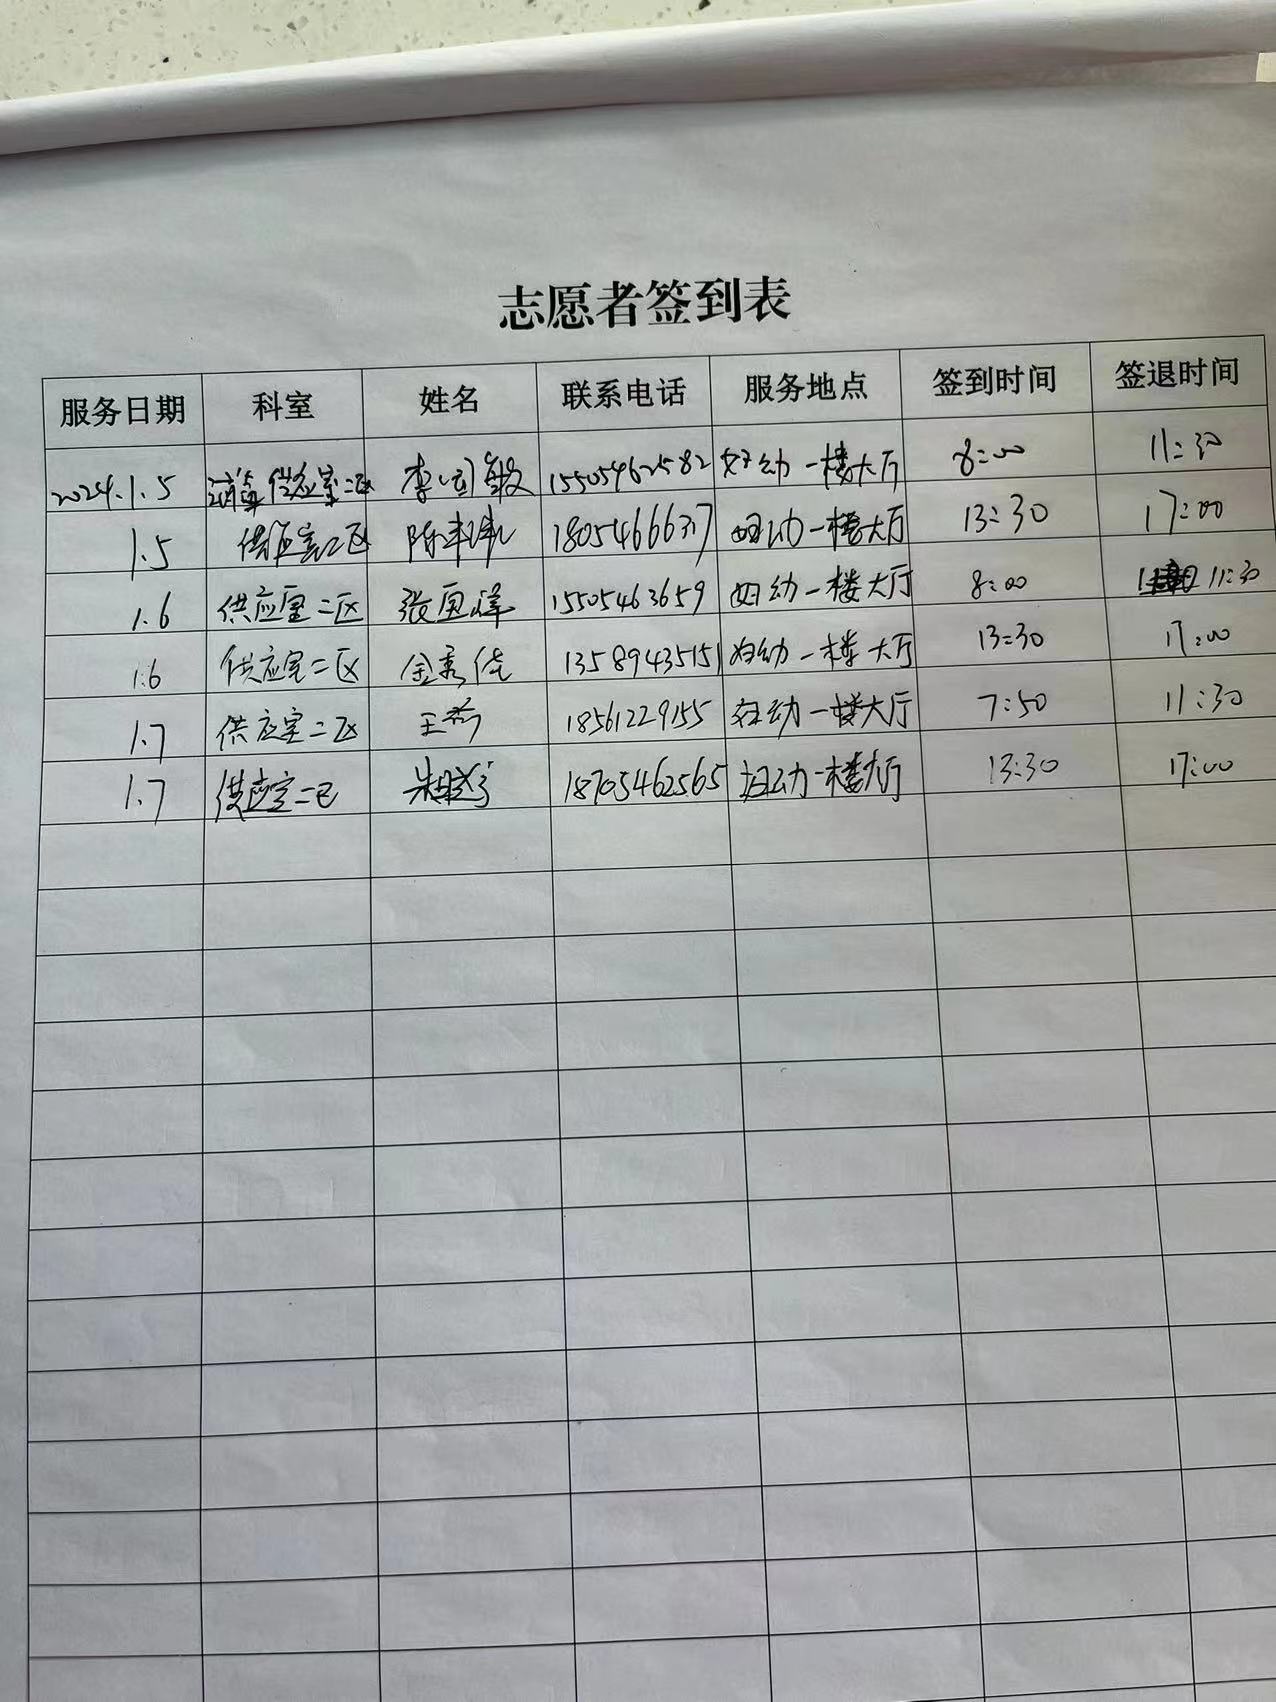 志愿者签到表
服务日期 科室 姓名 联系电话 服务地点 签到时间 签退时间
2024.1.5 消毒供应室二区 李 敏 15505462582 妇幼一楼大厅 8:00 11:30
1.5 供应室二区 陈 18054666317 妇幼一楼大厅 13:30 17:00
1.6 供应室二区 张 15505463659 妇幼一楼大厅 8:00 11:30
1.6 供应室二区 金秀佳 13589435151 妇幼一楼大厅 13:30 17:00
1.7 供应室二区 王 18561229155 妇幼一楼大厅 7:50 11:30
1.7 供应室二区 18705462565 妇幼一楼大厅 13:30 17:00